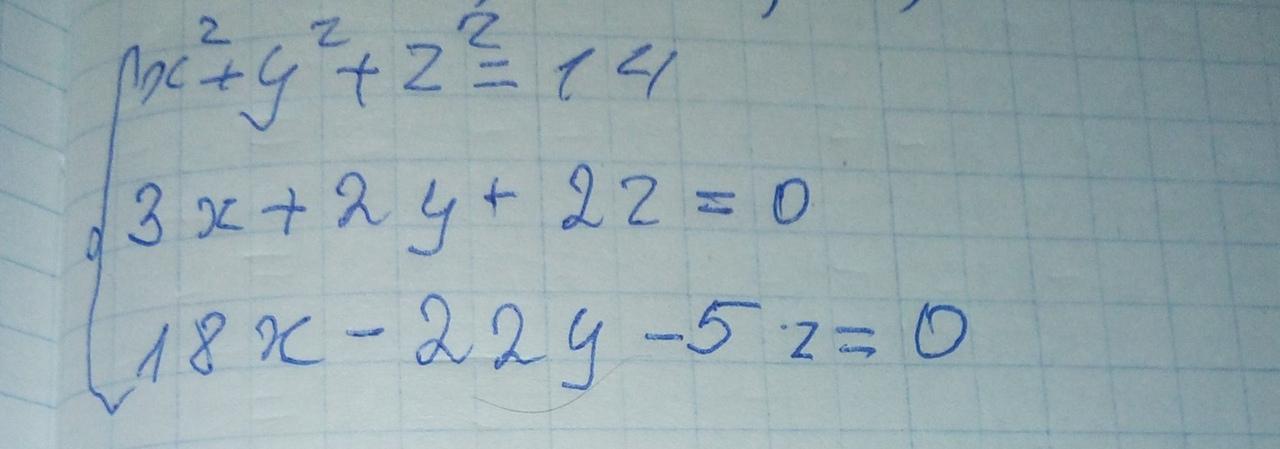 x² + y² + z² = 14
3x + 2y + 2z = 0
18x - 22y - 5z = 0